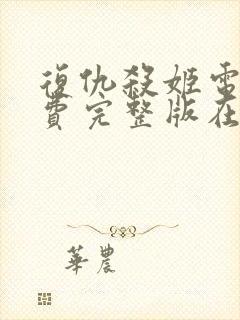 復仇殺姬電
費完整版在
華農